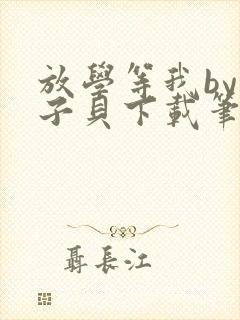 放學等我by
子貝下載筆
聶長江